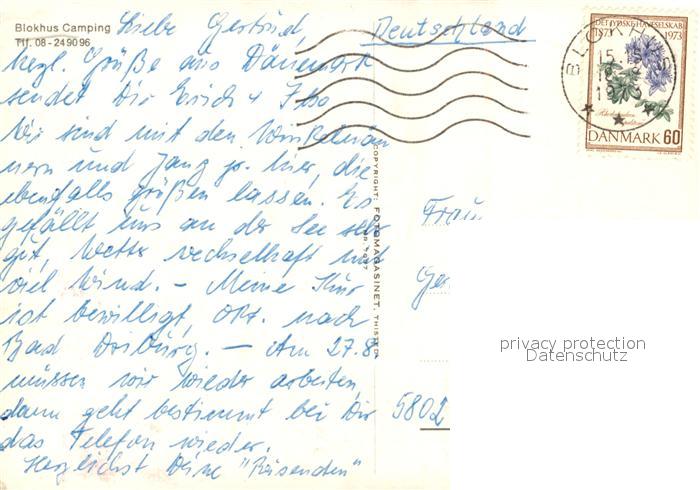 Blokhus Camping
Tlf. 08 - 24 90 96
Liebe Gertrud,
Deutschland
herzl. Grüße aus Dänemark
sendet Dir Erich + Ilse
Wir sind mit den Winkelmän
nern und jr. hier, die
ebenfalls grüßen lassen. Es
gefällt uns an der See sehr
gut, Wetter wechselhaft u.
viel Wind. - Meine Kur
ist bewilligt, Okt. nach
Bad Driburg. - Am 27.8.
müssen wir wieder arbeiten,
dann geht bestimmt bei Dir
das Telefon wieder.
Herzlichst Deine "Reisenden"
COPYRIGHT: FOTOMAGASINET, THISTED
Frau
Ger
5802
BLOKHUS
15.15
DET JYDSKE HAVESELSKAB
1873 1973
DANMARK 60
privacy protection
Datenschutz